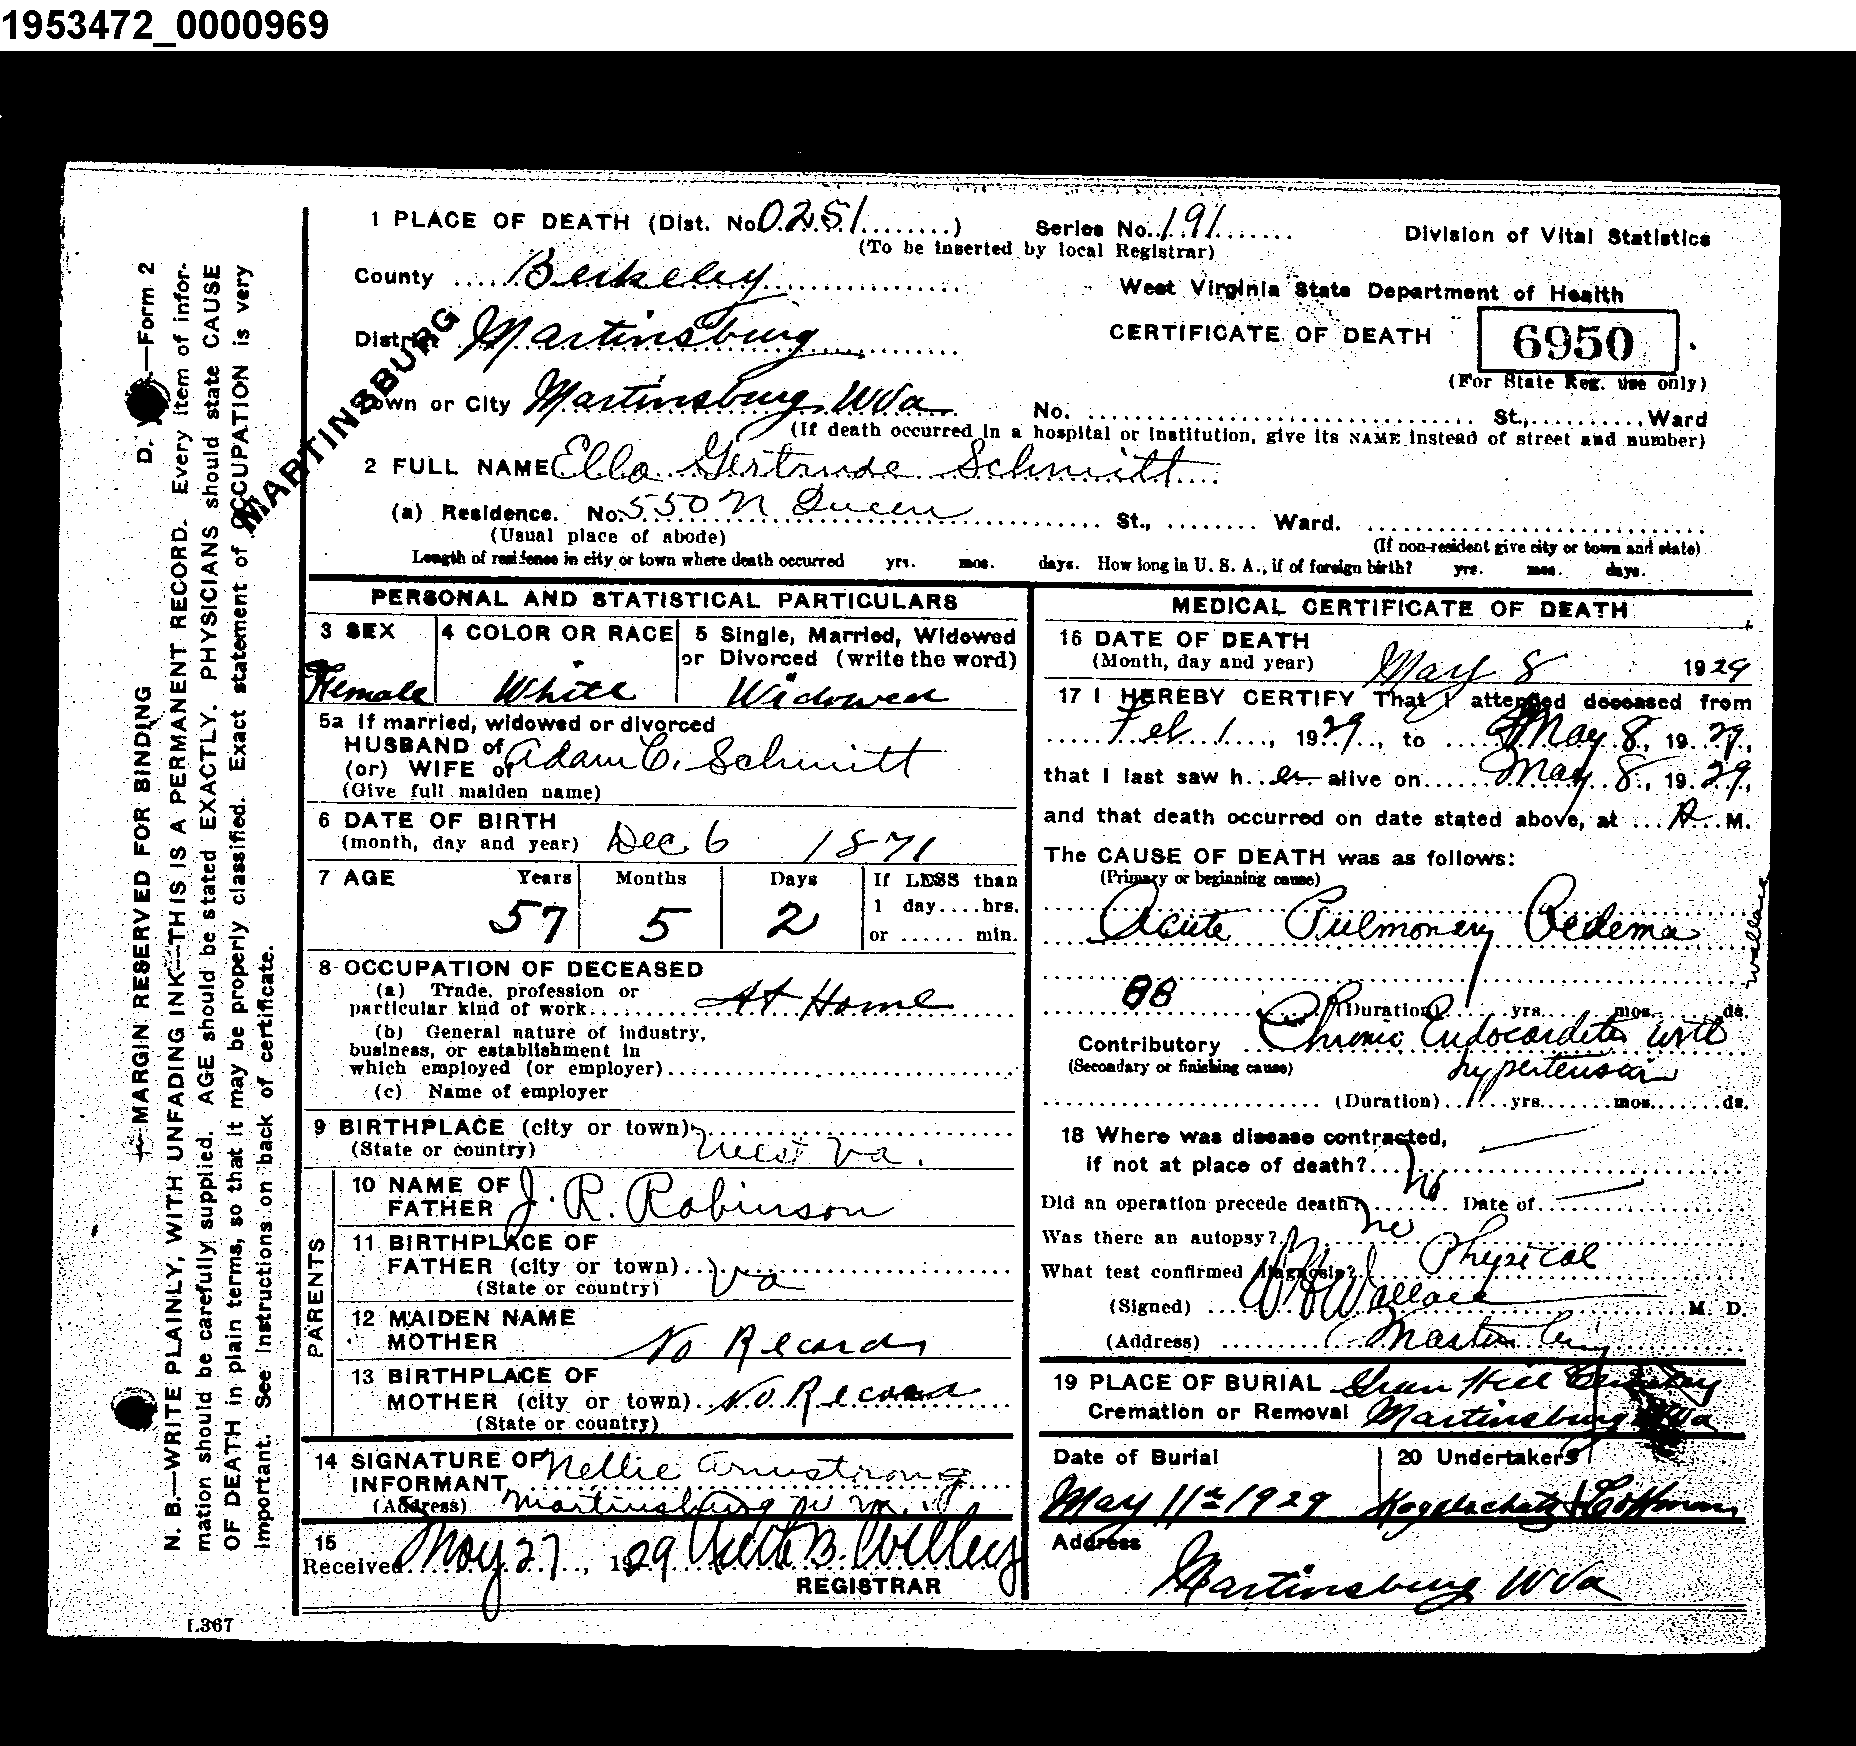 1953472_0000969
1 PLACE OF DEATH (Dist. No. 0251........) Series No. 191....... Division of Vital Statistics
(To be inserted by local Registrar)
County .... Berkeley
West Virginia State Department of Health
District Martinsburg
CERTIFICATE OF DEATH 6950
(For State Reg. use only)
MARTINSBURG
Town or City Martinsburg, WVa No. .................... St., .......... Ward
(If death occurred in a hospital or institution, give its NAME instead of street and number)
2 FULL NAME Ella Gertrude Schmitt
(a) Residence. No. 550 N Queen St., ........ Ward.
(Usual place of abode) (If non-resident give city or town and state)
Length of residence in city or town where death occurred yrs. mos. days. How long in U. S. A., if of foreign birth? yrs. mos. days.
PERSONAL AND STATISTICAL PARTICULARS
3 SEX 4 COLOR OR RACE 5 Single, Married, Widowed
or Divorced (write the word)
Female White Widowed
5a If married, widowed or divorced
HUSBAND of
(or) WIFE of Adam C. Schmitt
(Give full maiden name)
6 DATE OF BIRTH
(month, day and year) Dec 6 1871
7 AGE Years Months Days If LESS than
1 day....hrs.
57 5 2
or ...... min.
8 OCCUPATION OF DECEASED
(a) Trade, profession or
particular kind of work.... At Home
(b) General nature of industry,
business, or establishment in
which employed (or employer)
(c) Name of employer
9 BIRTHPLACE (city or town)
(State or country) West Va.
PARENTS
10 NAME OF
FATHER J. R. Robinson
11 BIRTHPLACE OF
FATHER (city or town)
(State or country) Va
12 MAIDEN NAME
MOTHER No Record
13 BIRTHPLACE OF
MOTHER (city or town) No Record
(State or country)
14 SIGNATURE OF
INFORMANT Nellie Armstrong
(Address) Martinsburg W Va.
15
Received May 27, 1929
REGISTRAR
MEDICAL CERTIFICATE OF DEATH
16 DATE OF DEATH
(Month, day and year) May 8 1929
17 I HEREBY CERTIFY That I attended deceased from
Feb 1, 1929, to May 8, 1929,
that I last saw h er alive on May 8, 1929,
and that death occurred on date stated above, at ... A. M.
The CAUSE OF DEATH was as follows:
(Primary or beginning cause)
Acute Pulmonary Oedema
88 (Duration) yrs. mos. ds.
Contributory Chronic Endocarditis with
(Secondary or finishing cause) hypertension
(Duration) yrs. mos. ds.
18 Where was disease contracted,
if not at place of death?
Did an operation precede death? No Date of
Was there an autopsy? no
What test confirmed diagnosis? Physical
(Signed) Wallace M. D.
(Address) Martinsburg
19 PLACE OF BURIAL Green Hill Cemetery
Cremation or Removal Martinsburg WVa
Date of Burial 20 Undertakers
May 11th 1929
Address
Martinsburg WVa
D. —Form 2
MARGIN RESERVED FOR BINDING
N. B.—WRITE PLAINLY, WITH UNFADING INK—THIS IS A PERMANENT RECORD. Every item of infor-
mation should be carefully supplied. AGE should be stated EXACTLY. PHYSICIANS should state CAUSE
OF DEATH in plain terms, so that it may be properly classified. Exact statement of OCCUPATION is very
important. See instructions on back of certificate.
Wallace
L367